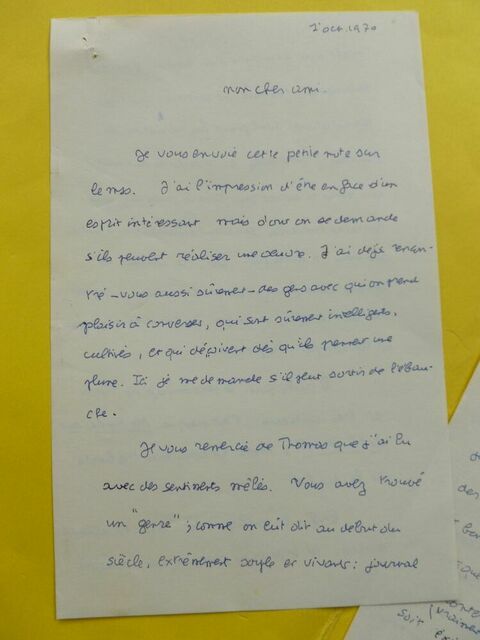 1 oct 1970
mon cher ami.
Je vous envoie cette petite note sur
le mss. J'ai l'impression d'être en face d'un
esprit intéressant mais dont on se demande
s'ils peuvent réaliser une oeuvre. J'ai déjà rencon-
tré - vous aussi sûrement - des gens avec qui on prend
plaisir à converser, qui sont sûrement intelligents,
cultivés, et qui déçoivent dès qu'ils prennent une
plume. Ici je me demande s'il peut sortir de l'ébau-
che.
Je vous remercie de Thomas que j'ai lu
avec des sentiments mêlés. Vous avez trouvé
un "genre"; comme on eût dit au début du
siècle, extrêmement souple et vivant : journal
des
soit